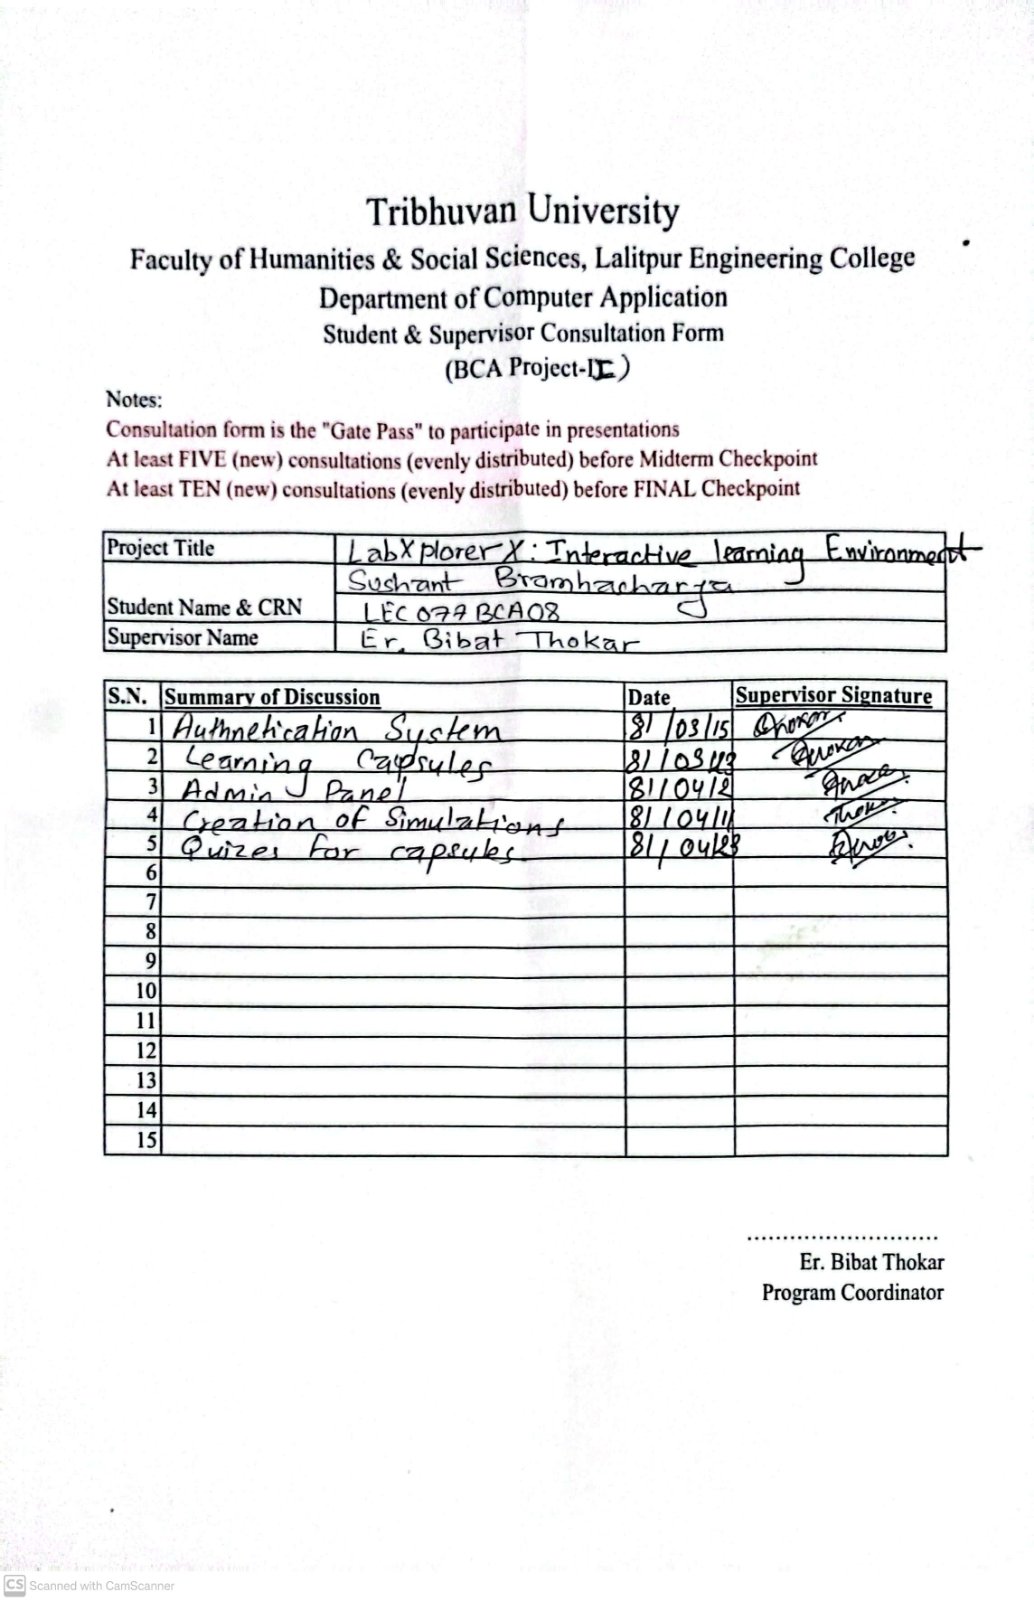 Tribhuvan University
Faculty of Humanities & Social Sciences, Lalitpur Engineering College
Department of Computer Application
Student & Supervisor Consultation Form
(BCA Project-II)
Notes:
Consultation form is the "Gate Pass" to participate in presentations
At least FIVE (new) consultations (evenly distributed) before Midterm Checkpoint
At least TEN (new) consultations (evenly distributed) before FINAL Checkpoint
Project Title LabXplorerX: Interactive learning Environment
Sushant Bramhacharya
Student Name & CRN LEC077BCA08
Supervisor Name Er. Bibat Thokar
S.N. Summary of Discussion Date Supervisor Signature
1 Authnetication System 81/03/15 Thokar
2 Learning Capsules 81/03/23 Thokar
3 Admin Panel 81/04/2
4 Creation of Simulations 81/04/11 Thokar
5 Quizes for capsules 81/04/23
6
7
8
9
10
11
12
13
14
15
Er. Bibat Thokar
Program Coordinator
CS Scanned with CamScanner